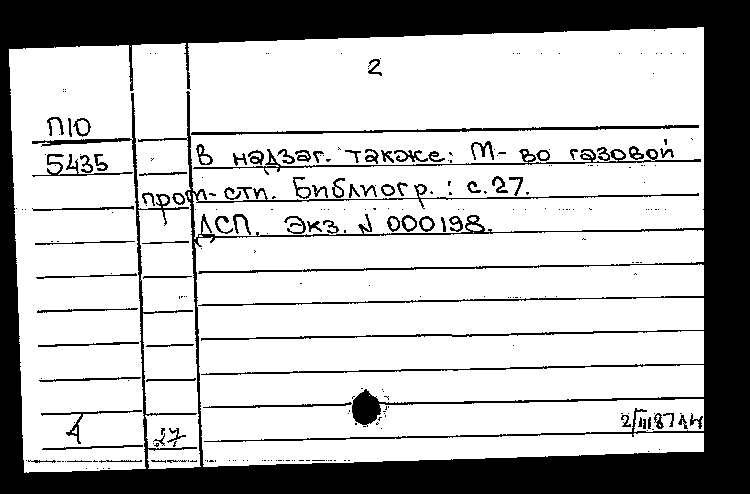 2
П10
5435
В надзаг. также: М-во газовой
пром-сти. Библиогр.: с.27.
ДСП. Экз. N 000198.
27
2/III87